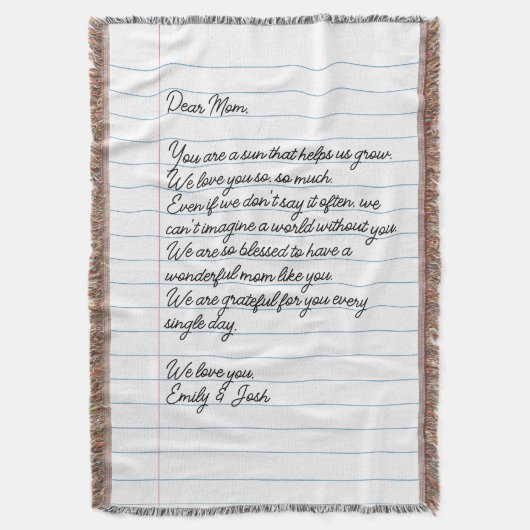 Dear Mom,
You are a sun that helps us grow.
We love you so, so much.
Even if we don't say it often, we
can't imagine a world without you.
We are so blessed to have a
wonderful mom like you.
We are grateful for you every
single day.
We love you.
Emily & Josh